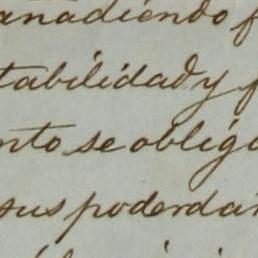 anadiendo f
tabilidad y f
nto se obliga
sus poderdan